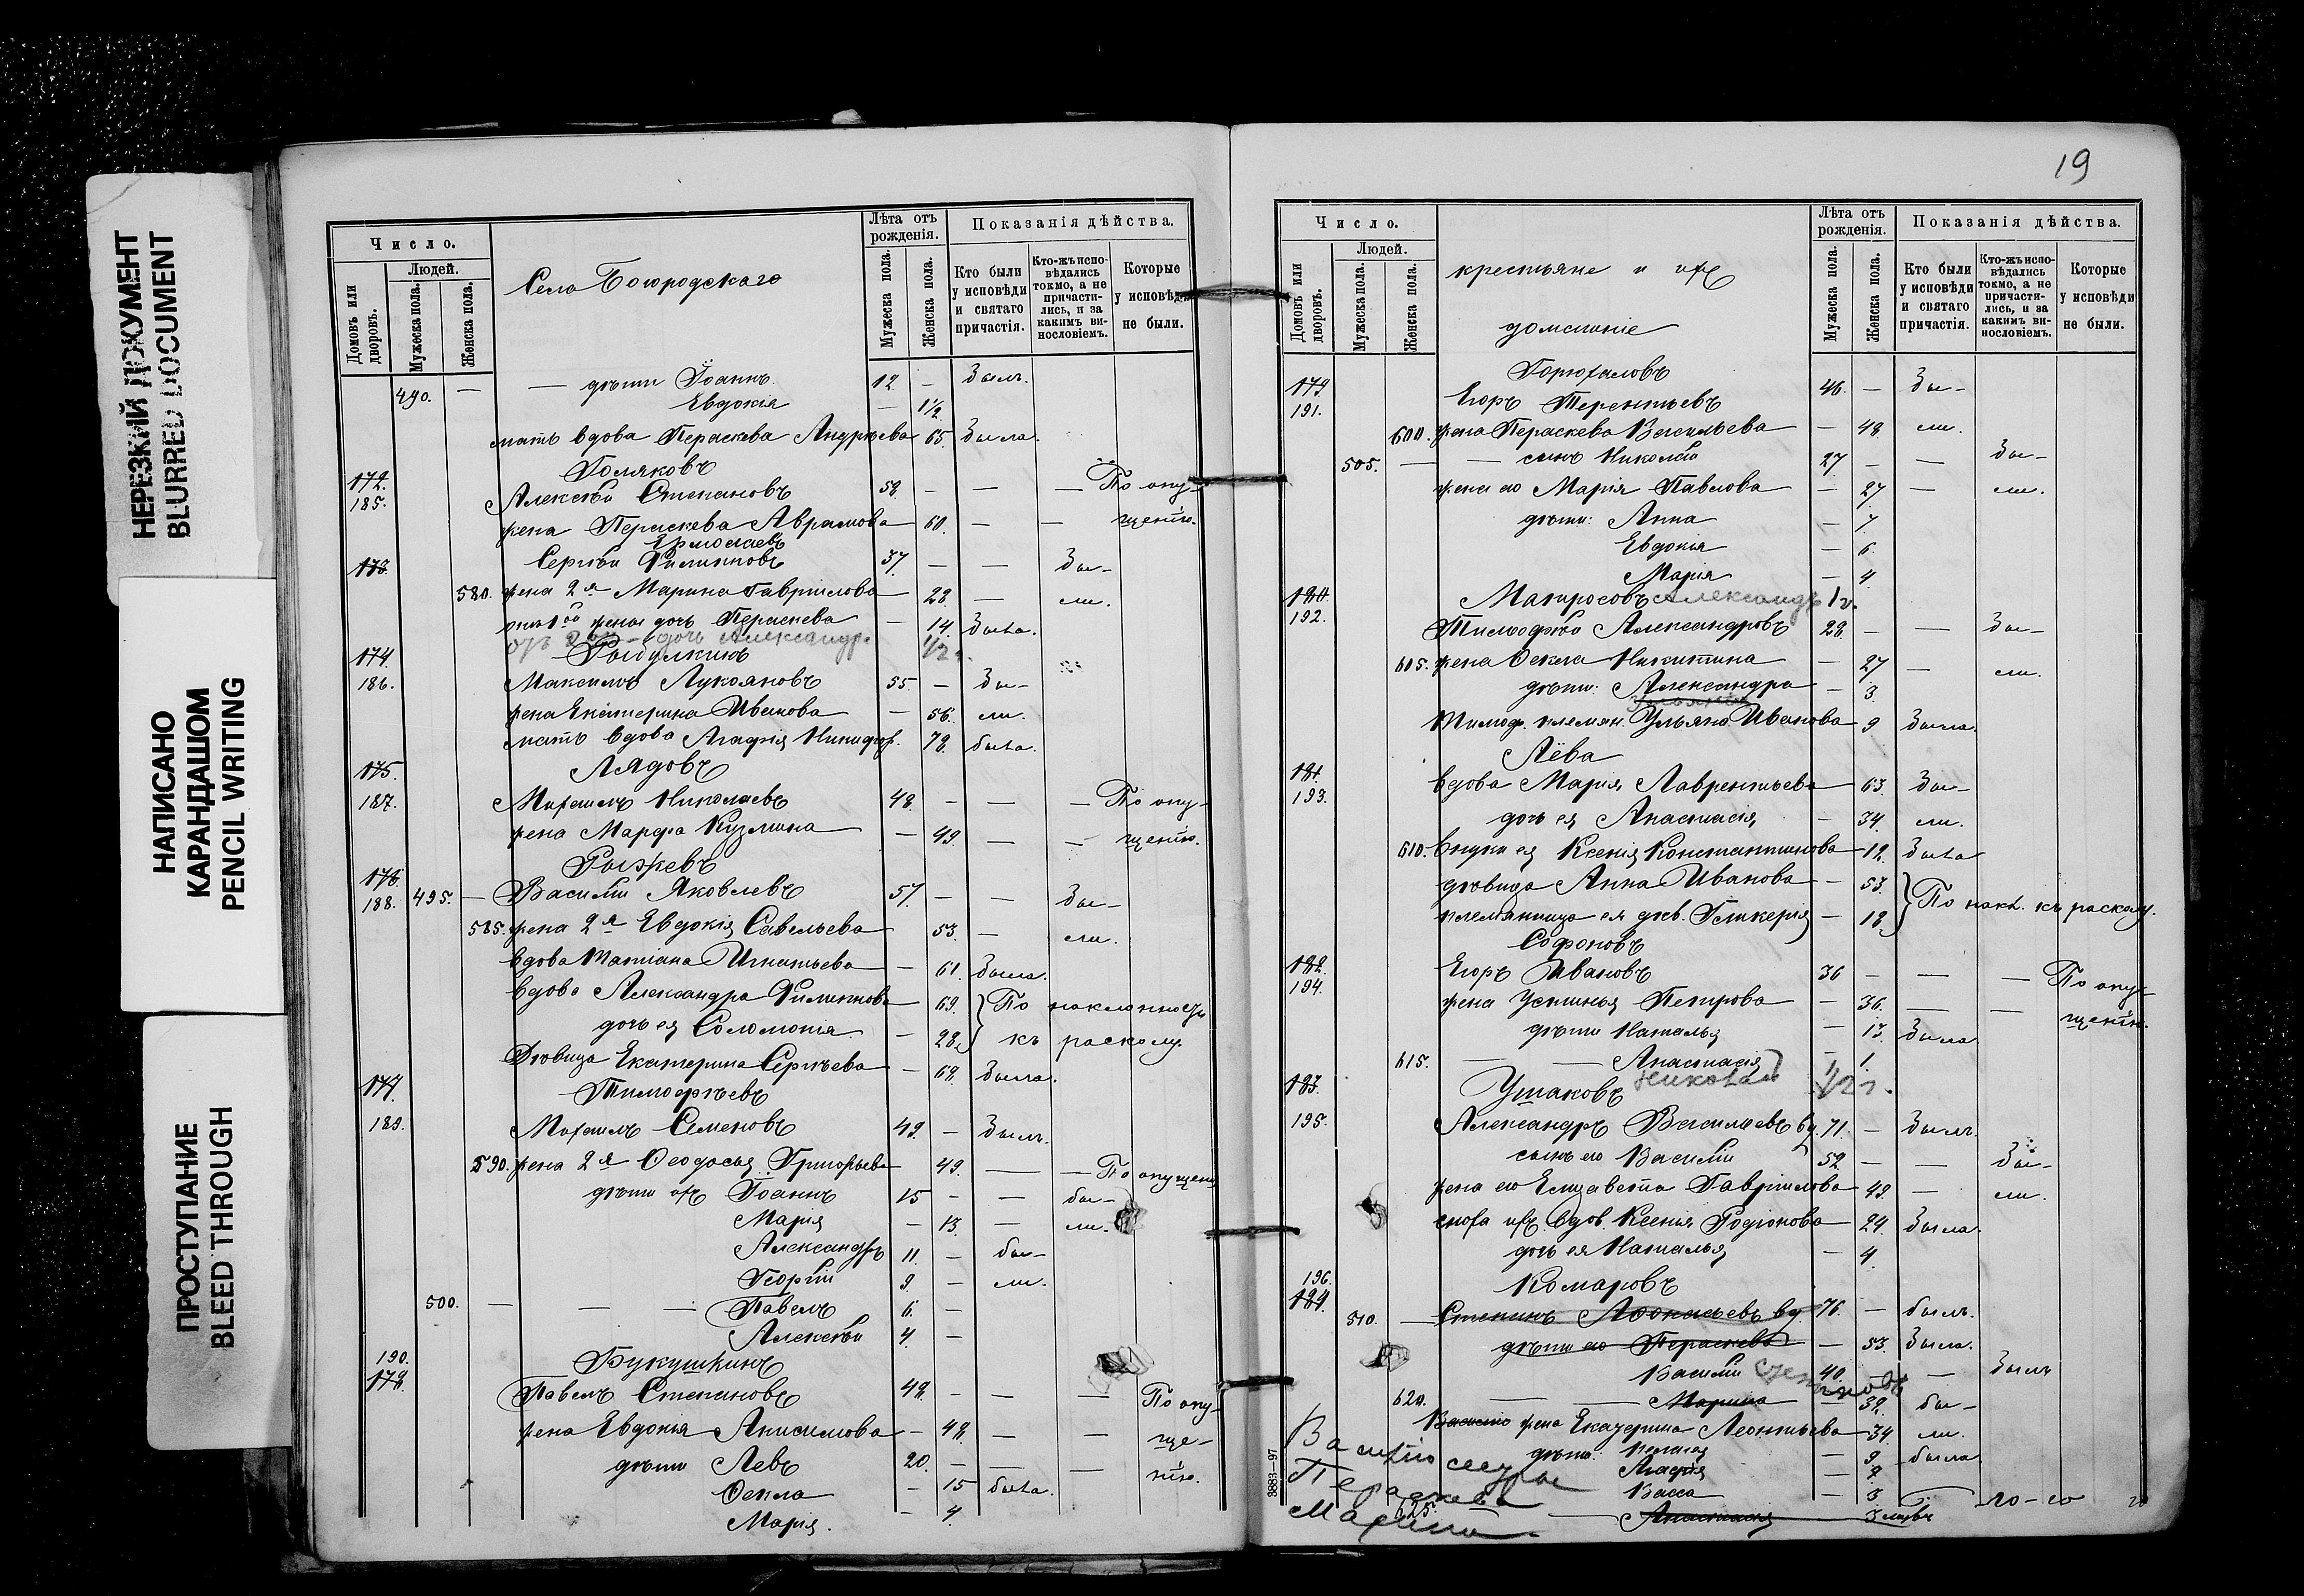 НЕРЕЗКИЙ ДОКУМЕНТ
BLURRED DOCUMENT
НАПИСАНО
КАРАНДАШОМ
PENCIL WRITING
ПРОСТУПАНИЕ
BLEED THROUGH
Число.
Людей.
Домовъ или дворовъ.
Мужеска пола.
Женска пола.
Села Богородскаго
Лѣта отъ рожденія.
Мужеска пола.
Женска пола.
Показанія дѣйства.
Кто были у исповѣди и святаго причастія.
Кто-жъ исповѣдались токмо, а не причастились, и за какимъ винословіемъ.
Которые у исповѣди не были.
490. — — дѣти Іоаннъ 12 — Былъ.
Евдокія — 1½
мать вдова Параскева Андреева 65 Была.
172. Голяковъ
185. Алексѣй Степановъ 58 — — — По опу-
жена Параскева Аврамова 60 — — щенію.
Ермолаевъ
173. Сергѣй Филипповъ 37 — — Бы-
580. жена 2я Марина Гавріилова 28 — ли.
отъ 1ой жены дочь Параскева — 14 Была.
дочь Александр. 1/2 г.
174.
186. Максимъ Лукояновъ 55 — Бы-
жена Екатерина Иванова — 56 ли.
мать вдова Агафія Никифор. 78 была.
175. Лядовъ
187. Михаилъ Николаевъ 48 — — — По опу-
жена Марфа Кузмина — 49 — — щенію.
176. Рыжевъ
188. 495. — Василій Яковлевъ 57 — — Бы-
585. жена 2я Евдокія Савельева 53 — ли.
вдова Татіана Игнатьева — 61 Была.
вдова Александра Филиппова 69 } По наклонности
дочь ея Соломонія — 28 } къ расколу.
Дѣвица Екатерина Сергѣева — 68 Была.
177. Тимофѣевъ
189. Михаилъ Семеновъ 49 — Былъ.
590. жена 2я Ѳеодосья Григорьева 49 — — По опущенію
дѣти ихъ Іоаннъ 15 — — бы-
Марія — 13 — ли.
Александръ 11 — бы-
Георгій 9 — ли.
500. — — — Павелъ 6 —
Алексѣй 4 —
190. Букушкинъ
178. Павелъ Степановъ 48 — — — По опу-
жена Евдокія Анисимова — 48 — — ще-
дѣти Левъ 20 — — — нію.
Ѳекла — 15 была.
Марія. — 4.
19
Число.
Людей.
Домовъ или дворовъ.
Мужеска пола.
Женска пола.
крестьяне и ихъ
домашніе
Лѣта отъ рожденія.
Мужеска пола.
Женска пола.
Показанія дѣйства.
Кто были у исповѣди и святаго причастія.
Кто-жъ исповѣдались токмо, а не причастились, и за какимъ винословіемъ.
Которые у исповѣди не были.
179. Горюхаловъ
191. Егоръ Терентьевъ 46 — Бы-
600. жена Параскева Васильева — 48 ли.
505. — — сынъ Николай 27 — — Бы-
жена его Марія Павлова — 27 — ли.
дѣти: Анна — 7
Евдокія — 6
Марія — 4
180. Матросовъ Александръ 1 г.
192. Тимофѣй Александровъ 28 — — Бы-
605. жена Ѳекла Никитина — 27 — ли.
дѣти: Александра — 3
Тимоф. племян. Ульяна Иванова 9 Была.
181. Лёва
193. вдова Марія Лаврентьева 63 Бы-
дочь ея Анастасія — 34 ли.
610. внука ея Ксенія Константинова 12 Была
дѣвица Анна Иванова — 53
племянница ея дѣв. Гликерія — 18 } По накл. къ расколу.
182. Софоновъ
194. Егоръ Ивановъ 36 — — — По опу-
жена Устинья Петрова — 36 — — щенію.
дѣти Наталья — 13 Была
615. — — Анастасія — 1
183. Ушаковъ Николай 1/2 г.
195. Александръ Васильевъ вд. 71 — Былъ.
сынъ его Василій 52 — — Бы-
жена его Елизавета Гавріилова 49 — ли.
сноха ихъ вдов. Ксенія Родіонова 24 Была.
дочь ея Наталья — 4
196. Комаровъ
184.
510. — Степанъ Аѳонасьевъ вд. 76 — былъ.
дѣти его Параскева — 53 Была.
Василій 40 — — Былъ
620. — Марина — 32 бы-
жена Екатерина Леонтьева 34 ли.
дѣти: Пелагея — 9 была
Агафія — 7
Васса — 3
625. — Анастасія
Василію сестры
Параскева
Марина
3883—97